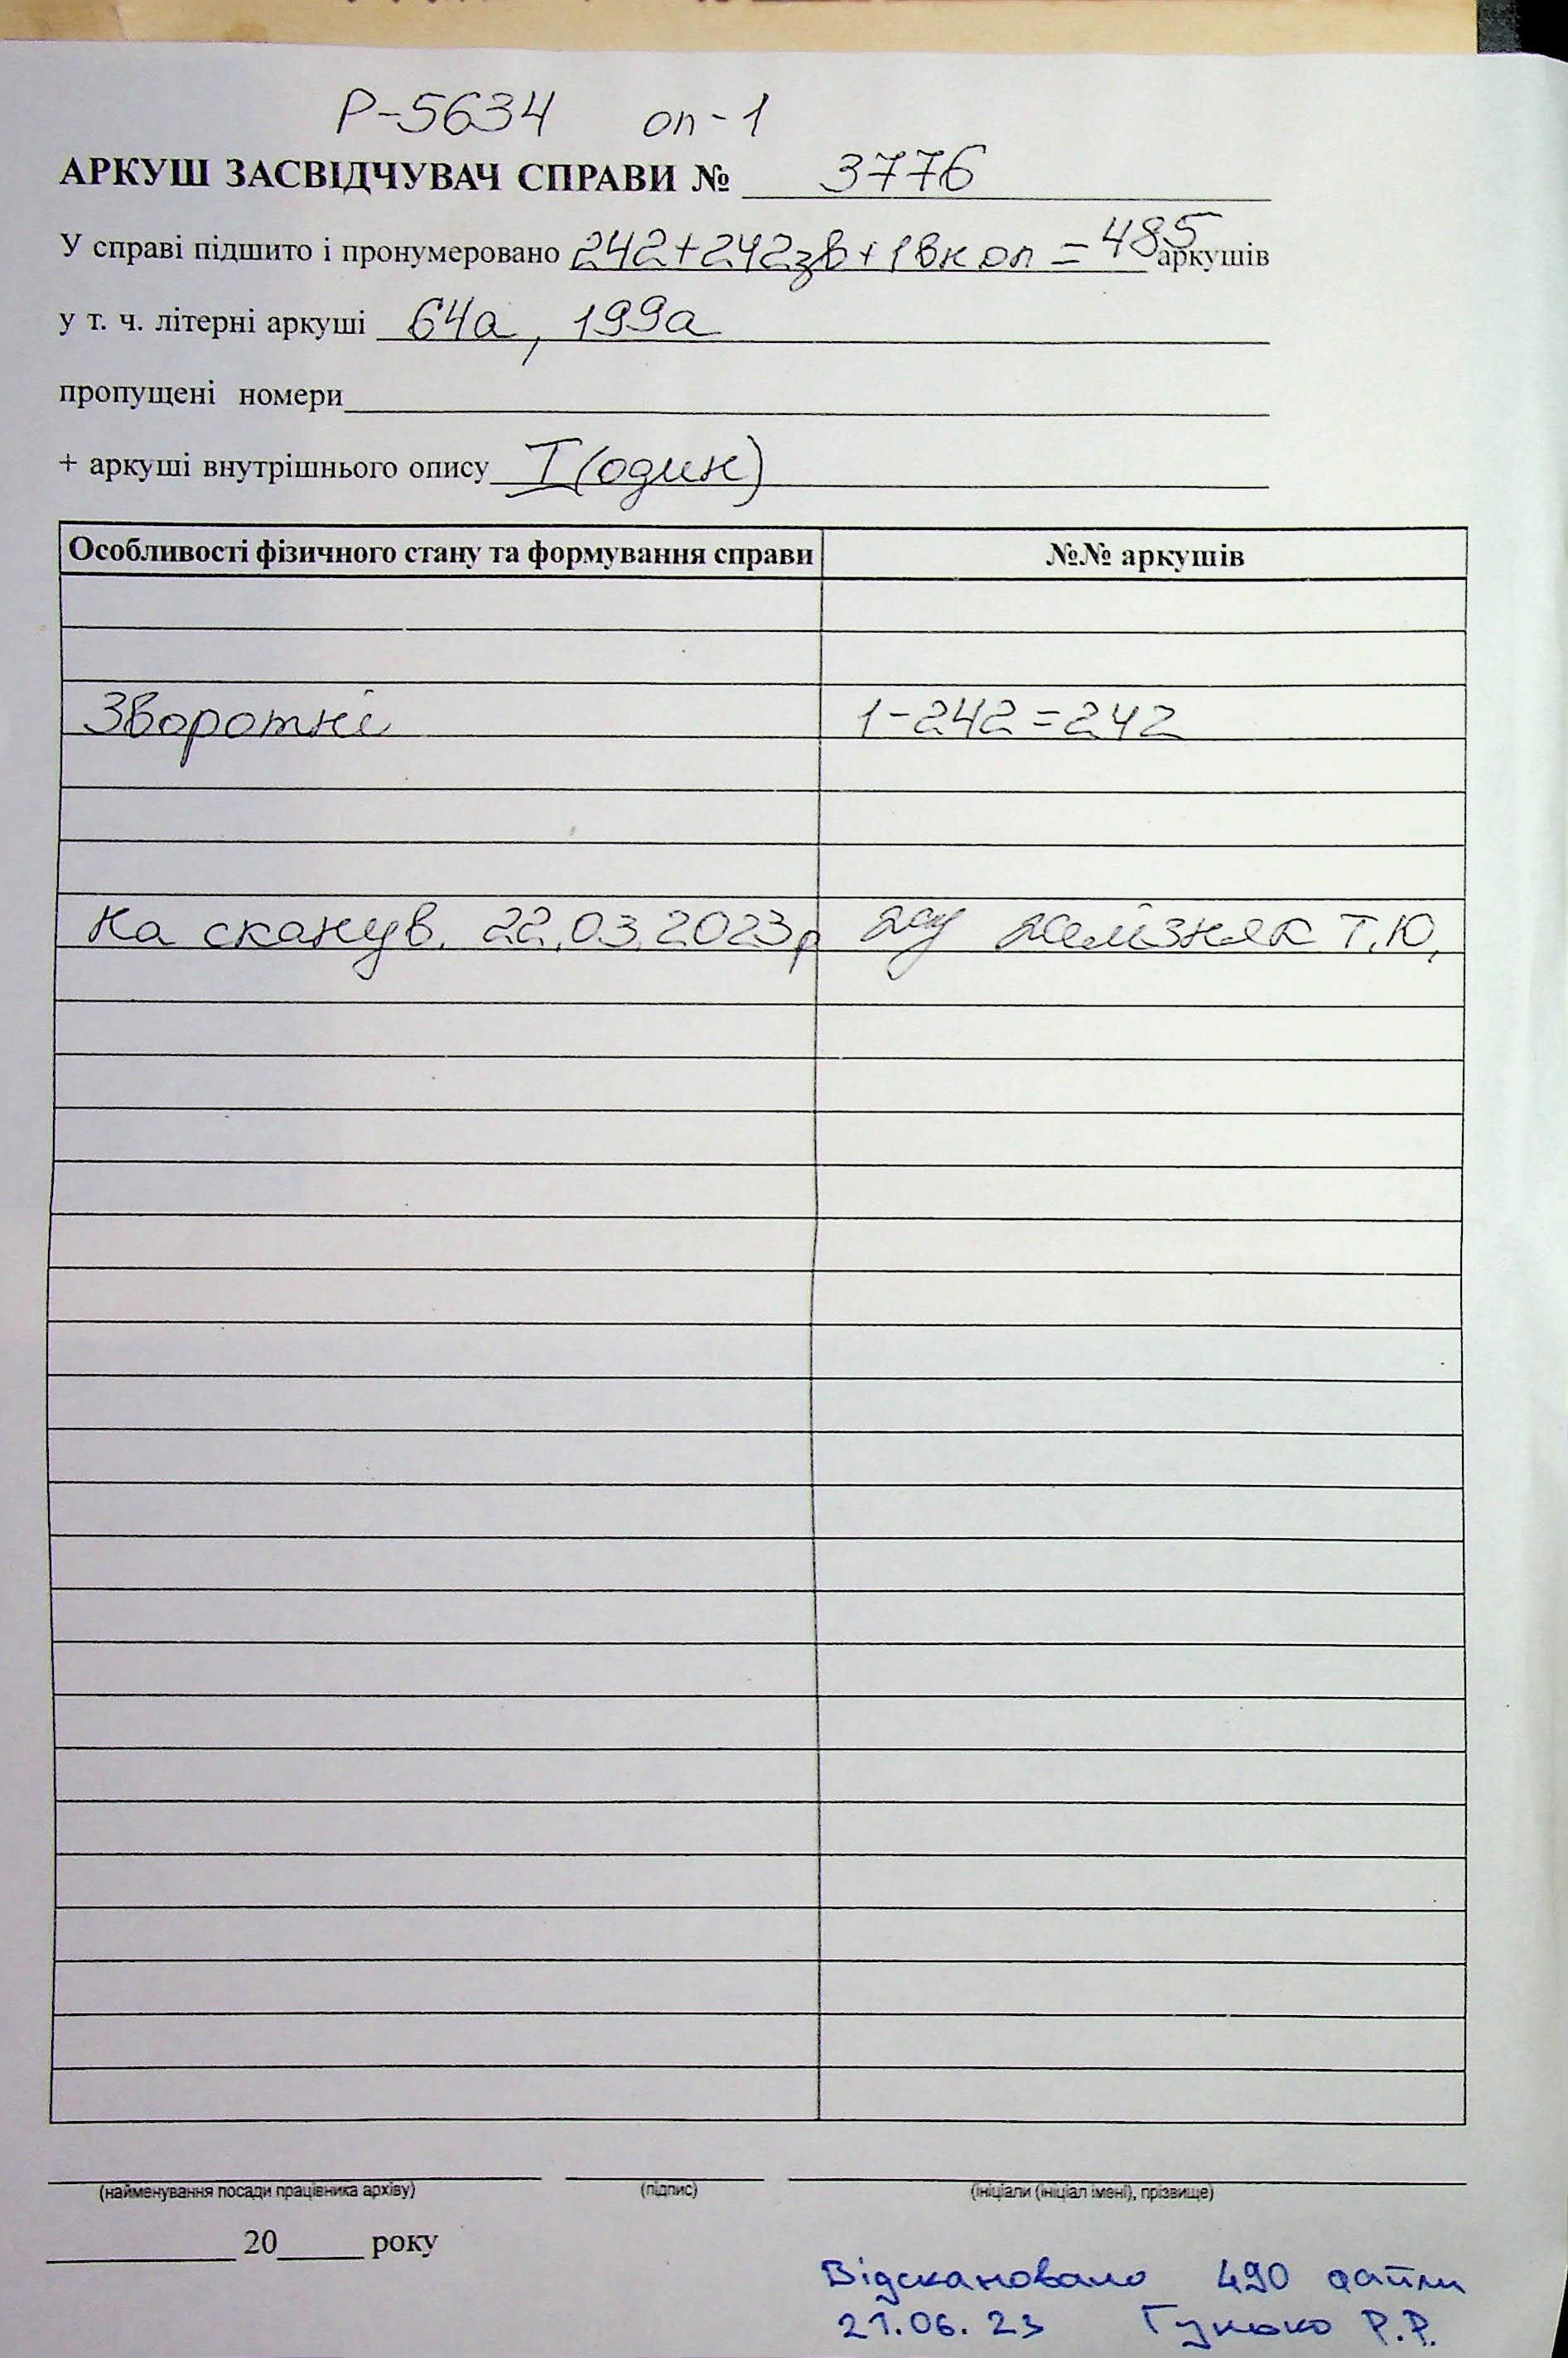 Р-5634 оп-1
АРКУШ ЗАСВІДЧУВАЧ СПРАВИ № 3776
У справі підшито і пронумеровано 242+242зв+1вн оп = 485 аркушів
у т. ч. літерні аркуші 64а, 199а
пропущені номери
+ аркуші внутрішнього опису I (один)
Особливості фізичного стану та формування справи №№ аркушів
Зворотні 1-242=242
На сканув. 22.03.2023р Желізняк Т.Ю.
(найменування посади працівника архіву) (підпис) (ініціали (ініціал імені), прізвище)
20 року
Відскановано 490 файли
21.06.23 Гунько Р.Р.